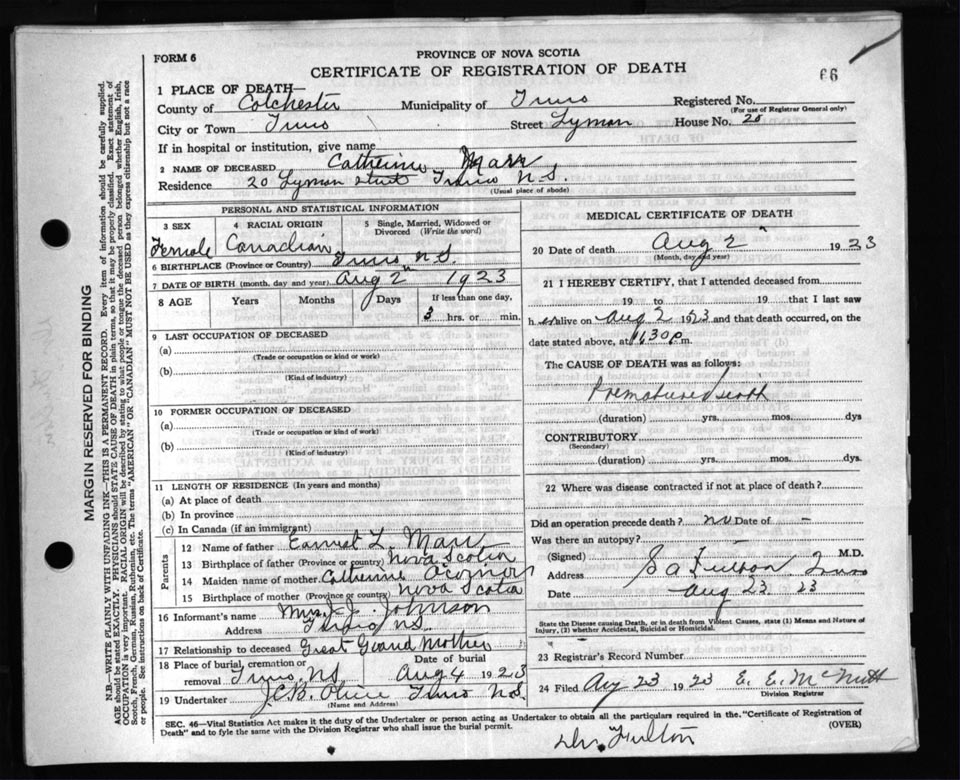 FORM 6
PROVINCE OF NOVA SCOTIA
CERTIFICATE OF REGISTRATION OF DEATH
66
1 PLACE OF DEATH—
County of Colchester Municipality of Truro Registered No.
(For use of Registrar General only)
City or Town Truro Street Lyman House No. 20
If in hospital or institution, give name
2 NAME OF DECEASED Catherine Marr
Residence 20 Lyman street Truro N.S.
(Usual place of abode)
PERSONAL AND STATISTICAL INFORMATION
3 SEX
Female
4 RACIAL ORIGIN
Canadian
5 Single, Married, Widowed or Divorced (Write the word)
6 BIRTHPLACE (Province or Country) Truro N.S.
7 DATE OF BIRTH (month, day and year) Aug 2" 1923
8 AGE Years Months Days If less than one day,
3 hrs. or min.
9 LAST OCCUPATION OF DECEASED
(a)
(Trade or occupation or kind of work)
(b)
(Kind of industry)
10 FORMER OCCUPATION OF DECEASED
(a)
(Trade or occupation or kind of work)
(b)
(Kind of industry)
11 LENGTH OF RESIDENCE (In years and months)
(a) At place of death
(b) In province
(c) In Canada (if an immigrant)
Parents
12 Name of father Earnest L Marr
13 Birthplace of father (Province or country) Nova Scotia
14 Maiden name of mother Catherine O'Conner
15 Birthplace of mother (Province or country) Nova Scotia
16 Informant's name Mrs. J. Johnson
Address N.S.
17 Relationship to deceased Great Grand Mother
18 Place of burial, cremation or removal Truro, N.S. Date of burial Aug 4 1923
19 Undertaker J.C.B. Truro N.S.
(Name and Address)
MEDICAL CERTIFICATE OF DEATH
20 Date of death Aug 2" 1923
(Month, day and year)
21 I HEREBY CERTIFY, that I attended deceased from
19 to 19 that I last saw
h er alive on Aug 2 1923 and that death occurred, on the
date stated above, at 11.30 p.m.
The CAUSE OF DEATH was as follows:
Premature
(duration) yrs. mos. dys
CONTRIBUTORY
(Secondary)
(duration) yrs. mos. dys.
22 Where was disease contracted if not at place of death?
Did an operation precede death? no Date of –
Was there an autopsy? –
(Signed) S a Fulton M.D.
Address Truro
Date Aug 23. 23
State the Disease causing Death, or in death from Violent Causes, state (1) Means and Nature of
Injury, (2) whether Accidental, Suicidal or Homicidal.
23 Registrar's Record Number
24 Filed Aug 23 1923 E. E. McNutt
Division Registrar
SEC. 46—Vital Statistics Act makes it the duty of the Undertaker or person acting as Undertaker to obtain all the particulars required in the "Certificate of Registration of
Death" and to fyle the same with the Division Registrar who shall issue the burial permit. (OVER)
Dr. Fulton
MARGIN RESERVED FOR BINDING
N.B.—WRITE PLAINLY WITH UNFADING INK—THIS IS A PERMANENT RECORD. Every item of information should be carefully supplied.
AGE should be stated EXACTLY. PHYSICIANS should STATE CAUSE OF DEATH in plain terms, so that it may be properly classified. Exact statement of
OCCUPATION is very important. RACIAL ORIGIN will be described by stating to what people or tongue the deceased person belonged whether English, Irish,
Scotch, French, German, Russian, Ruthenian, etc. The terms "AMERICAN" OR "CANADIAN" MUST NOT BE USED as they express citizenship but not a race
or people. See instructions on back of Certificate.